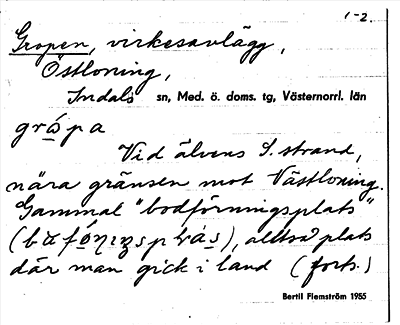 1-2.
Gropen, virkesavlägg,
Östloning,
Indals sn, Med. ö. doms. tg, Västernorrl. län
grópa
Vid älvens S. strand,
nära gränsen mot Västloning.
Gammal "bodförningsplats"
alltså plats
där man gick i land (forts.)
Bertil Flemström 1955